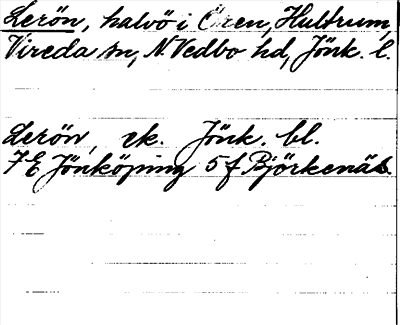 Lerön, halvö i Ören, Hultrum,
Vireda sn, N. Vedbo hd, Jönk. l.
Lerön, ek. Jönk. bl.
7E Jönköping 5 f Björkenäs.